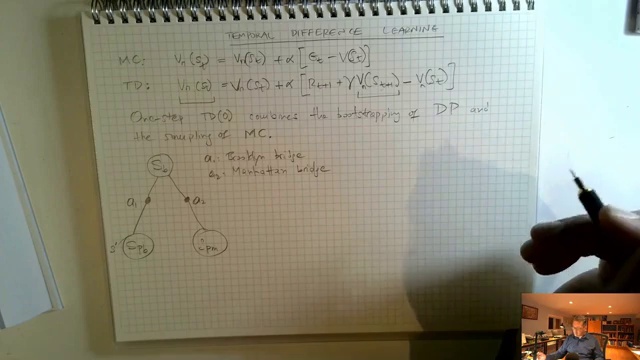 TEMPORAL DIFFERENCE LEARNING
MC: Vπ(St) = Vπ(St) + α [Gt − V(St)]
TD: Vπ(St) = Vπ(St) + α [Rt+1 + γ Vπ(St+1) − Vπ(St)]
One-step TD(0) combines the bootstrapping of DP and
the sampling of MC.
a1: Brooklyn bridge
a2: Manhattan bridge
Sb
a1 a2
s' Spb Spm